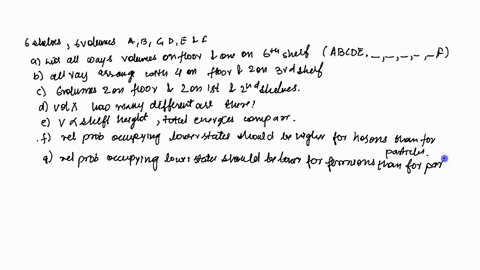 6 shelves, 6 volumes A, B, C, D, E & F
a) list all ways volumes on floor & one on 6th shelf (ABCDE, _, _, _, _, _F)
b) all ray arrange with 4 on floor & 2 on 3rd shelf
c) 6 volumes 2 on floor & 2 on 1st & 2nd shelves.
d) vol X how many different are there!
e) V ∝ shelf height, total energies compare.
f) rel prob occupying lower states should be higher for bosons than for particles.
g) rel prob occupying lower state should be lower for fermions than for par